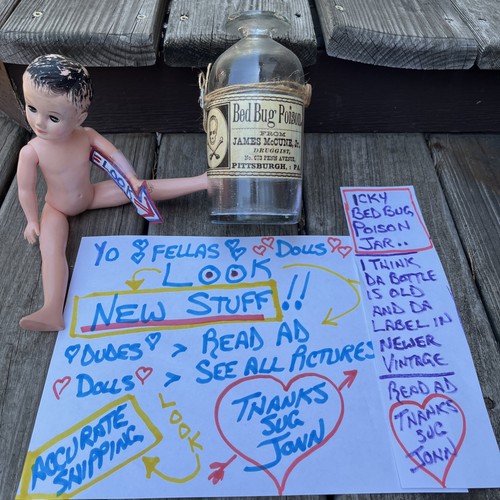 LOOK
Bed Bug Poison,
FROM
JAMES McCUNE, Jr.,
DRUGGIST,
PENN AVENUE,
PITTSBURGH, : PA.
YO FELLAS DOLLS
LOOK
NEW STUFF!!
DUDES > READ AD
DOLLS > SEE ALL PICTURES
ACCURATE
SHIPPING
LOOK
THANKS
SUG
JOHN
ICKY
BED BUG
POISON
JAR..
I THINK
DA BOTTLE
IS OLD
AND DA
LABEL IN
NEWER
VINTAGE
READ AD
THANKS
SUG
JOHN